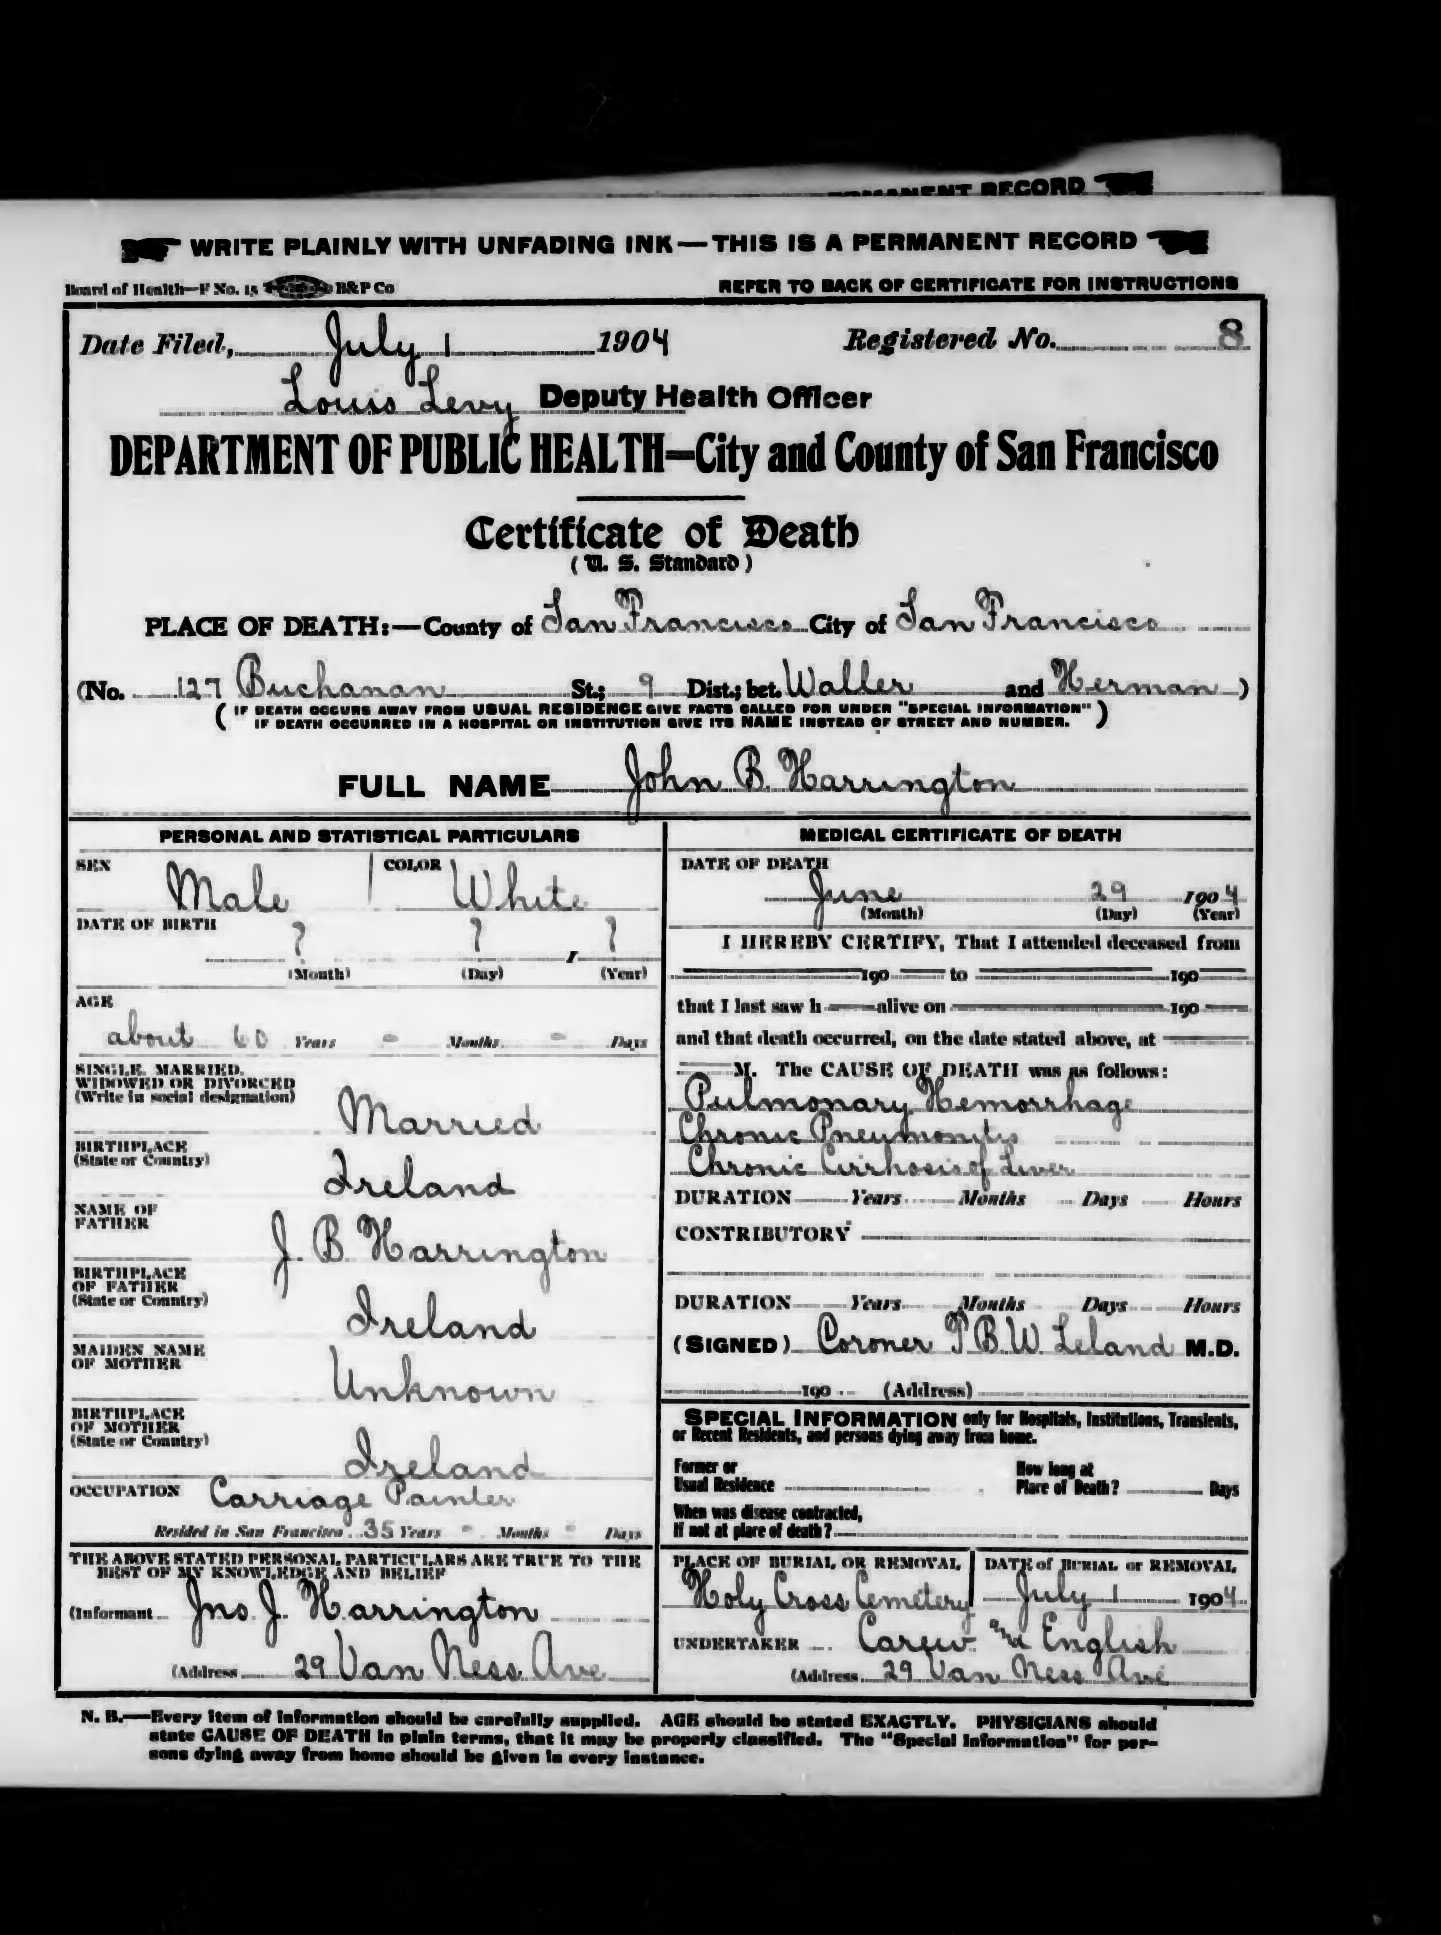 RMANENT RECORD
WRITE PLAINLY WITH UNFADING INK—THIS IS A PERMANENT RECORD
Board of Health—F No. 15 B&P Co REFER TO BACK OF CERTIFICATE FOR INSTRUCTIONS
Date Filed, July 1 1904 Registered No. 8
Louis Levy Deputy Health Officer
DEPARTMENT OF PUBLIC HEALTH—City and County of San Francisco
Certificate of Death
(U. S. Standard)
PLACE OF DEATH:—County of San Francisco City of San Francisco
(No. 127 Buchanan St.; 9 Dist.; bet. Waller and Herman)
(IF DEATH OCCURS AWAY FROM USUAL RESIDENCE GIVE FACTS CALLED FOR UNDER "SPECIAL INFORMATION"
IF DEATH OCCURRED IN A HOSPITAL OR INSTITUTION GIVE ITS NAME INSTEAD OF STREET AND NUMBER.)
FULL NAME John B. Harrington
PERSONAL AND STATISTICAL PARTICULARS
SEX Male COLOR White
DATE OF BIRTH ? ? 1 ?
(Month) (Day) (Year)
AGE
about 60 Years - Months - Days
SINGLE, MARRIED,
WIDOWED OR DIVORCED
(Write in social designation)
Married
BIRTHPLACE
(State or Country)
Ireland
NAME OF
FATHER
J. B. Harrington
BIRTHPLACE
OF FATHER
(State or Country)
Ireland
MAIDEN NAME
OF MOTHER
Unknown
BIRTHPLACE
OF MOTHER
(State or Country)
Ireland
OCCUPATION Carriage Painter
Resided in San Francisco 35 Years - Months - Days
THE ABOVE STATED PERSONAL PARTICULARS ARE TRUE TO THE
BEST OF MY KNOWLEDGE AND BELIEF
(Informant Jno. J. Harrington
(Address 29 Van Ness Ave
MEDICAL CERTIFICATE OF DEATH
DATE OF DEATH
June 29 1904
(Month) (Day) (Year)
I HEREBY CERTIFY, That I attended deceased from
190 to 190
that I last saw h alive on 190
and that death occurred, on the date stated above, at
M. The CAUSE OF DEATH was as follows:
Pulmonary Hemorrhage
Chronic Pneumonitis
Chronic Cirrhosis of Liver
DURATION Years Months Days Hours
CONTRIBUTORY
DURATION Years Months Days Hours
(SIGNED) Coroner T B W Leland M.D.
190 (Address)
SPECIAL INFORMATION only for Hospitals, Institutions, Transients,
or Recent Residents, and persons dying away from home.
Former or
Usual Residence
How long at
Place of Death? Days
When was disease contracted,
If not at place of death?
PLACE OF BURIAL OR REMOVAL DATE of BURIAL or REMOVAL
Holy Cross Cemetery July 1 1904
UNDERTAKER Carew and English
(Address 29 Van Ness Ave
N. B.—Every item of information should be carefully supplied. AGE should be stated EXACTLY. PHYSICIANS should
state CAUSE OF DEATH in plain terms, that it may be properly classified. The "Special Information" for per-
sons dying away from home should be given in every instance.